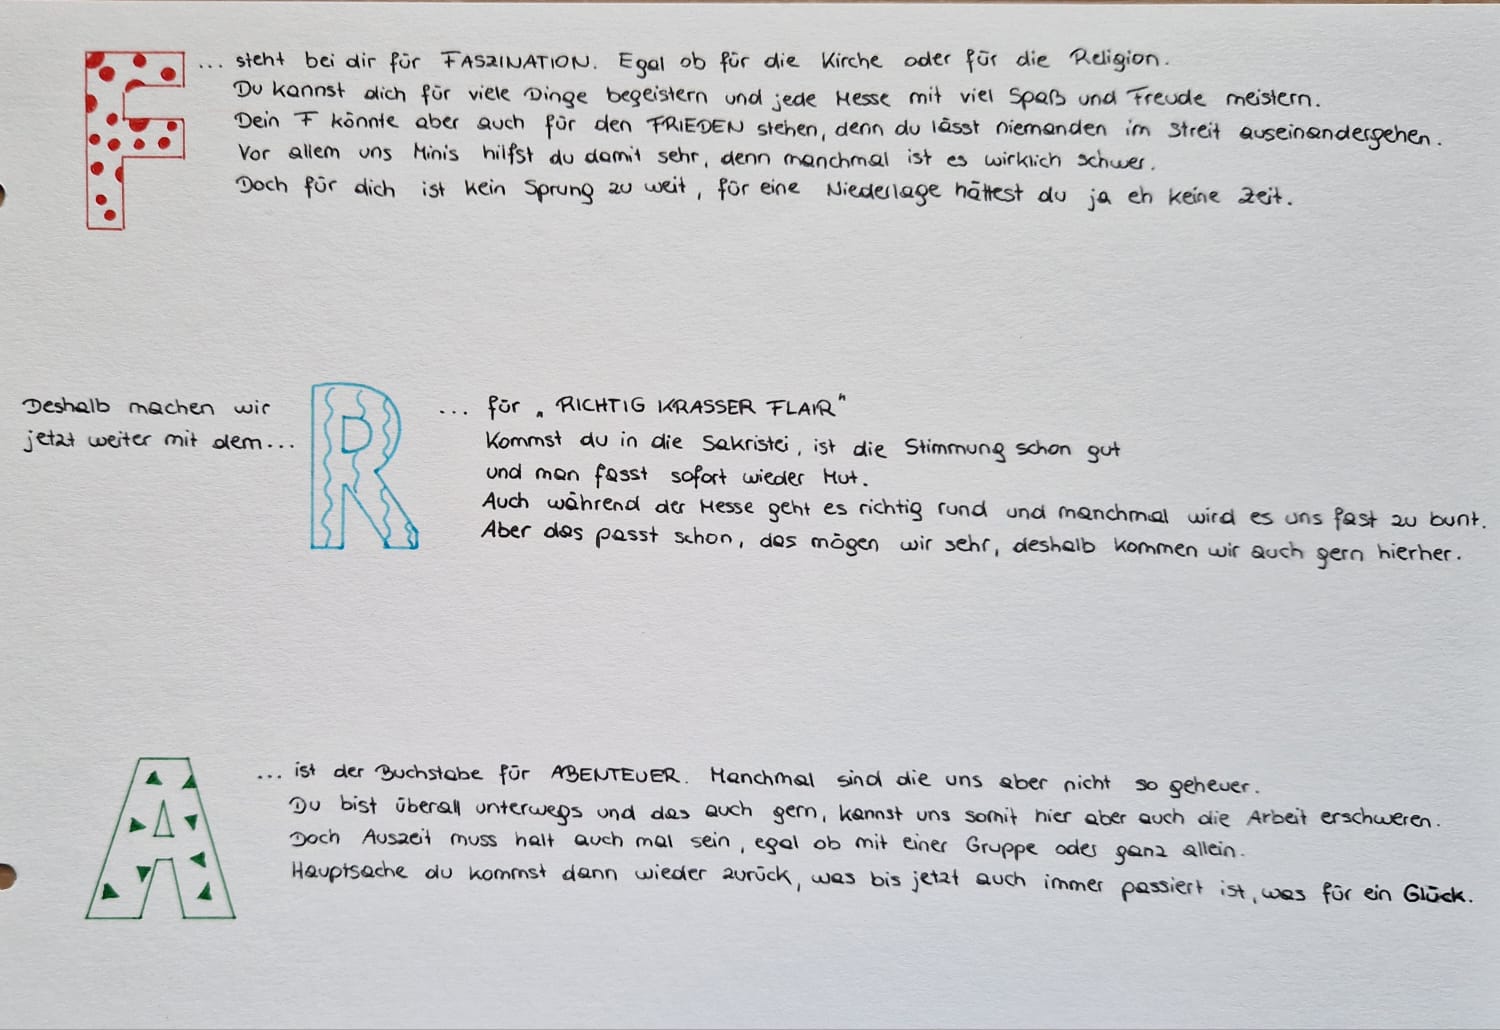 F ... steht bei dir für FASZINATION. Egal ob für die Kirche oder für die Religion.
Du kannst dich für viele Dinge begeistern und jede Messe mit viel Spaß und Freude meistern.
Dein F könnte aber auch für den FRIEDEN stehen, denn du lässt niemanden im Streit auseinandergehen.
Vor allem uns Minis hilfst du damit sehr, denn manchmal ist es wirklich schwer.
Doch für dich ist kein Sprung zu weit, für eine Niederlage hättest du ja eh keine Zeit.
Deshalb machen wir
jetzt weiter mit dem...
R ... für „RICHTIG KRASSER FLAIR"
Kommst du in die Sakristei, ist die Stimmung schon gut
und man fasst sofort wieder Mut.
Auch während der Messe geht es richtig rund und manchmal wird es uns fast zu bunt.
Aber das passt schon, das mögen wir sehr, deshalb kommen wir auch gern hierher.
A ... ist der Buchstabe für ABENTEUER. Manchmal sind die uns aber nicht so geheuer.
Du bist überall unterwegs und das auch gern, kannst uns somit hier aber auch die Arbeit erschweren.
Doch Auszeit muss halt auch mal sein, egal ob mit einer Gruppe oder ganz allein.
Hauptsache du kommst dann wieder zurück, was bis jetzt auch immer passiert ist, was für ein Glück.